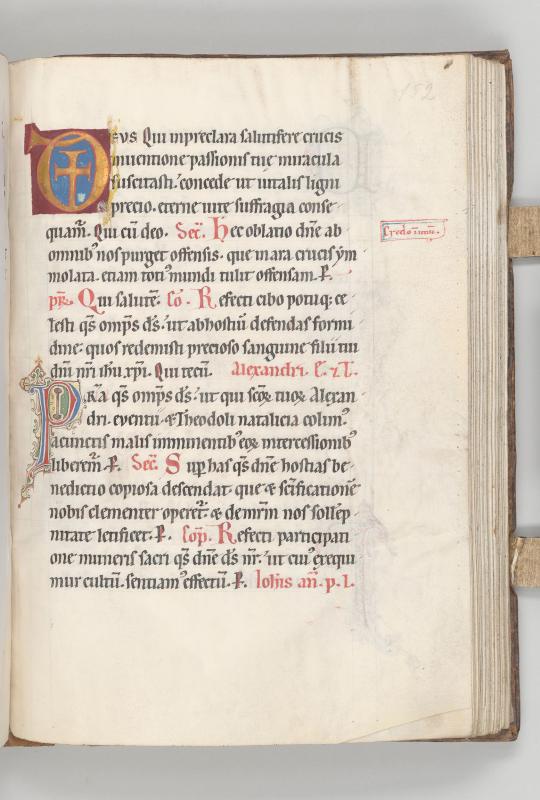 152
DSVS Qui in preclara salutifere crucis
inuentione passionis tue miracula
suscitasti. concede ut uitalis ligni
precio. eterne uite suffragia conse-
quam̄. Qui cū deo. Sec̄. Hec oblatio dn̄e ab
omnibꝰ nos purget offensis. que in ara crucis ym
molata. etiam totiꝰ mundi tulit offensam. P.
pf̄. Qui salutē. Cō. Refecti cibo potuq; ce
lesti qs̄ omp̄s ds̄. ut ab hostiū defendas formi
dine. quos redemisti precioso sanguine filii tui
dn̄i nr̄i ihū xp̄i. Qui tecū. Alexandri. E. ⁊ T.
PRa qs̄ omp̄s ds̄. ut qui scōꝝ tuoꝝ Alexan-
dri. euentii. & Theodoli natalicia colimꝰ.
a cunctis malis imminentibꝰ eoꝝ intercessionibꝰ
liberem̄. P. Sec̄. Sup has qs̄ dn̄e hostias be-
nedictio copiosa descendat. que & scīficationē
nobis clementer operet̄. & de mr̄m nos sollēp
nitate letificet. P. Cōp̄. Refecti participati
one muneris sacri qs̄ dn̄e ds̄ nr̄. ut cuiꝰ exequi
mur cultū. sentiamꝰ effectū. P. Iohis an̄. p. l.
Credo